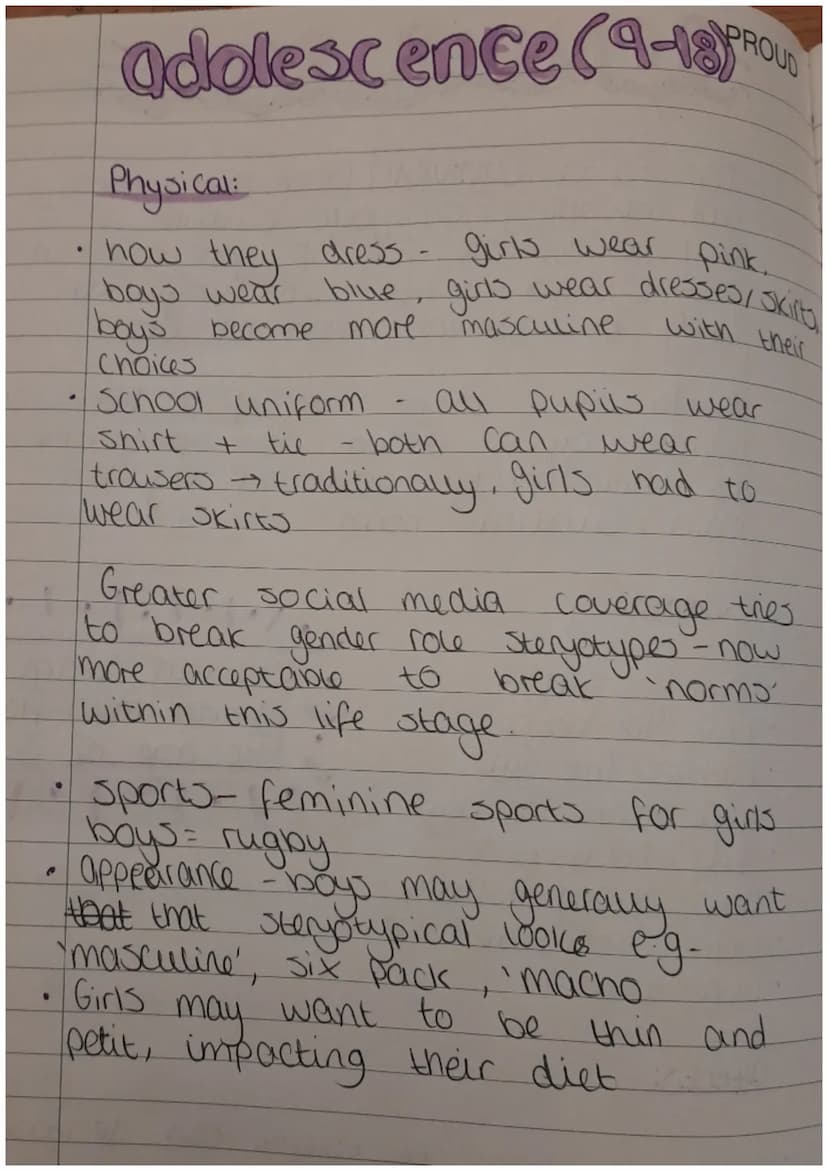 adolescence (9-18) PROUD
Physical:
• how they dress - girls wear pink,
boys wear blue, girls wear dresses/skirts,
boys become more masculine with their
choices
• School uniform - all pupils wear
shirt + tie - both can wear
trousers → traditionally, girls had to
wear skirts
Greater social media coverage tries
to break gender role steryotypes - now
more acceptable to break 'norms'
within this life stage.
• sports - feminine sports for girls
boys = rugby
• appearance - boys may generally want
that that steryotypical looks e.g.
'masculine', six pack, 'macho
• Girls may want to be thin and
petit, impacting their diet